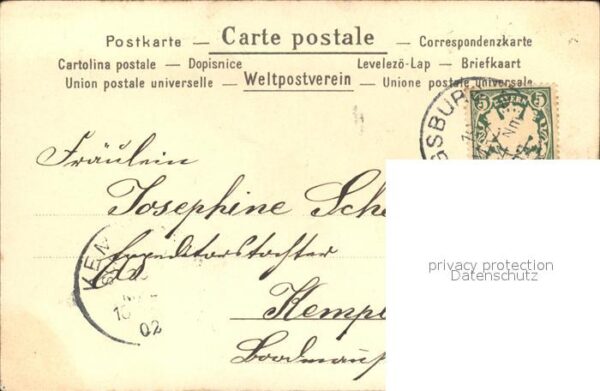 Postkarte — Carte postale — Correspondenzkarte
Cartolina postale — Dopisnice Levelező-Lap — Briefkaart
Union postale universelle — Weltpostverein — Unione postale universale
GSBUR
5 5
Fräulein
Josephine Sche
Expeditorstochter
KEM
02
Kempe
privacy protection
Datenschutz